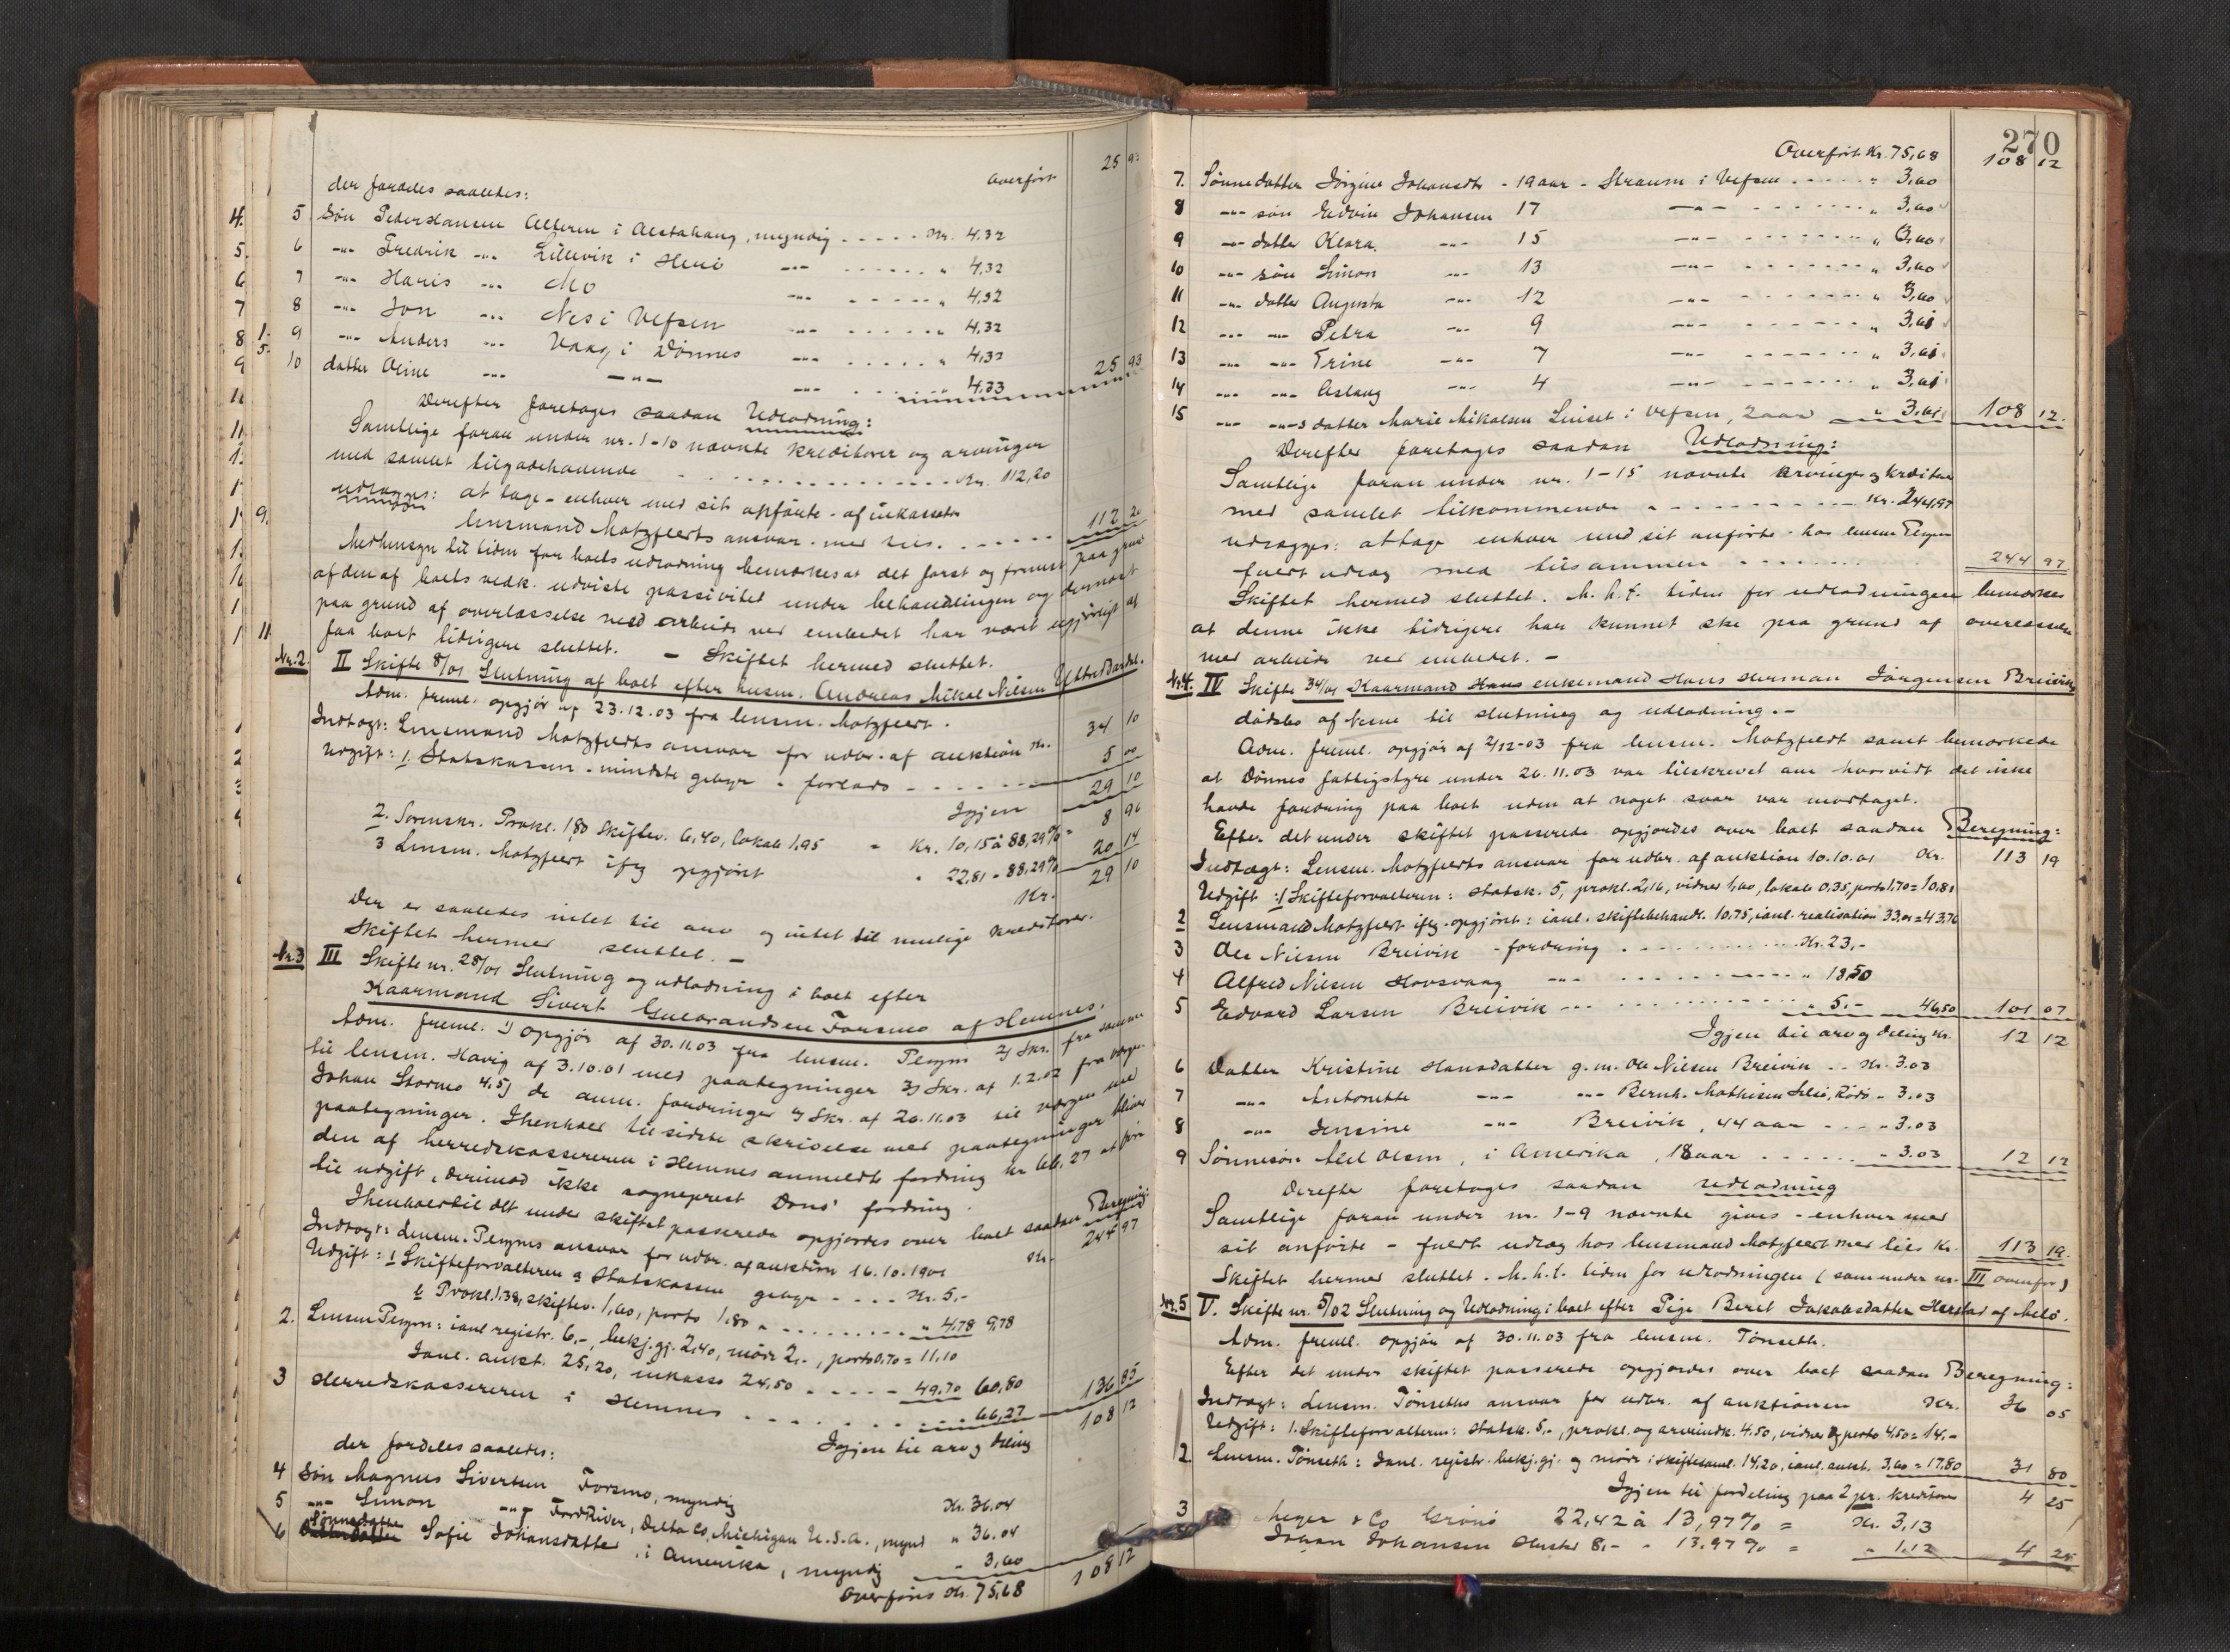 Overført 25 93
der fordeles saaledes:
5 Søn Peder Hansen Alteren i Alstahaug, myndig . . . . . Kr. 4.32
6 -"- Fredrik -"- Lillevik i Herø -"- . . . . . . " 4,32
7 -"- Hans -"- Mo -"- . . . . . " 4,32
8 -"- Jon -"- Nes i Vefsen -"- . . . . . " 4,32
9 -"- Anders -"- Vaag i Dønnes -"- . . . . . " 4,32
10 datter Oline -"- -"- -"- . . . . . " 4,33 25 93
Derefter foretages saadan Udlodning:
Samtlige foran under nr. 1-10 nævnte kreditorer og arvinger
med samlet tilgodehavende . . . . . . . . Kr. 112,20
udlægges: at tage - enhver med sit opførte - af inkassator
lensmand Motzfeldts ansvar - med tils. . . . . . . 112 20
Medhensyn til tiden for boets udlodning bemærkes at det først og fremst paa grund
af den af boets vedk. udviste passivitet under behandlingen og dernæst
paa grund af overlæsselse med arbeide ved embedet har været ugjørligt at
faa boet tidligere sluttet. - Skiftet hermed sluttet.
Nr. 2. II Skifte 8/01 Slutning af boet efter husm. Andreas Mikal Nilsen Ytterdardal.
Adm. freml. opgjør af 23.12.03 fra lensm. Motzfeldt.
Indtægt: Lensmand Motzfeldts ansvar for udbr. af auktion Kr. 34 10
Udgift: 1. Statskassen - mindste gebyr - forlods - - - - - 5 00
Igjen 29 10
2. Sorenskr. Prokl. 1,80 Skiftev. 6,40, lokale 1,95 = Kr. 10,15 à 88,29% = 8 96
3 Lensm. Motzfeldt ifg opgjøret " 22,81 - 88,29% 20 14
Kr. 29 10
Der er saaledes intet til arv og intet til mulige kreditorer.
Skiftet hermed sluttet. -
Nr. 3 III Skifte nr. 28/01 Slutning og udlodning i boet efter
Kaarmand Sivert Gulbrandsen Forsmo af Hemnes.
Adm. freml. 1) Opgjør af 30.11.03 fra lensm. Plesym 2) Skr. fra samme
til lensm. Havig af 3.10.01 med paategninger 3) Skr. af 1.2.02 fra værgen
Johan Stormo 4.5) de anm. fordringer 6) Skr. af 20.11.03 til værgen med
paategninger. Ihenhold til sidste skrivelse med paategninger bliver
den af herredskassereren i Hemnes anmeldte fordring kr 66,27 at føre
til udgift, derimod ikke sogneprest Dons' fordring.
Ihenhold til det under skiftet passerede opgjordes over boet saadan Beregning:
Indtægt: Lensm. Plesyms ansvar for udbr. af auktion 16.10.1901 Kr. 244 97
Udgift: 1 Skifteforvalteren a Statskassen gebyr . . . . Kr. 5,-
b Prokl. 1,38, skiftev. 1,60, porto 1,80 = . . . . . . " 4,78 9,78
2. Lensm Plesym: ianl registr. 6,-, bekj.gj. 2,40, møde 2,-, porto 0,70 = 11,10
Ianl. aukt. 25,20, inkasso 24,50 . . . . . 49,70 60,80
3 Herredskassereren i Hemnes . . . . . . . . . 66,27 136 85
Igjen til arv og deling 108 12
der fordeles saaledes:
4 Søn Magnus Sivertsen Forsmo, myndig Kr. 36.04
5 -"- Simon -"- Ford River, Delta Co, Michigan U.S.A., mynd " 36.04
6 Sønnedatter Sofie Johansdatter i Amerika, myndig " 3,60 108 12
Overføres Kr. 75,68
270
Overført Kr. 75,68 108 12
7. Sønnedatter Jørgine Johansdtr - 19 aar - Straum i Vefsen . . . . . " 3,60
8 -"- søn Edvin Johansen 17 -"- . . . . . . " 3,60
9 -"- datter Klara -"- 15 -"- . . . . . . " 3,60
10 -"- søn Simon -"- 13 -"- . . . . . . " 3,60
11 -"- datter Augusta -"- 12 -"- . . . . . . " 3,60
12 -"- -"- Petra -"- 9 -"- . . . . . . " 3,61
13 -"- -"- Trine -"- 7 -"- . . . . . . " 3,61
14 -"- -"- Aslaug -"- 4 -"- . . . . . . " 3,61
15 -"- -"-s datter Marie Mikalsen Luiset i Vefsen, 2 aar " 3,61 108 12.
Derefter foretages saadan Udlodning:
Samtlige foran under nr. 1-15 nævnte arvinger og kreditor
med samlet tilkommende . . . . . . . . . Kr. 244,97
udlægges: at tage enhver med sit anførte - hos lensm Plesym
fuldt udlæg med tilsammen . . . . . . . 244 97
Skiftet hermed sluttet. M. h. t. tiden for udlodningen bemærkes
at denne ikke tidligere har kunnet ske paa grund af overlæsselse
med arbeide ved embedet. -
Nr. 4. IV Skifte 34/01 Kaarmand Hans enkemand Hans Herman Jørgensen Breivik
dødsbo af Nesne til slutning og udlodning. -
Adm. freml. opgjør af 2/12-03 fra lensm. Motzfeldt samt bemærkede
at Dønnes fattigstyre under 26.11.03 var tilskrevet om hvorvidt det ikke
havde fordring paa boet uden at noget svar var modtaget.
Efter det under skiftet passerede opgjordes over boet saadan Beregning:
Indtægt: Lensm. Motzfeldts ansvar for udbr. af auktion 10.10.01 Kr. 113 19
Udgift: 1 Skifteforvalteren: statsk. 5, prokl. 2,16, vidner 1,60, lokale 0,35, porto 1,70 = 10,81
2 Lensmand Motzfeldt ifg. opgjøret: ianl. skiftebehandl. 10,75, ianl. realisation 33,01 = 43,76
3 Ole Nilsen Breivik - fordring . . . . . . . . . Kr. 23,-
4 Alfred Nilsen Hovsvaag -"- . . . . . . . . " 18,50
5 Edvard Larsen Breivik -"- . . . . . . . . " 5.- 46,50 101 07
Igjen til arv og deling Kr. 12 12
6 Datter Kristine Hansdatter g.m. Ole Nilsen Breivik . . Kr. 3.03
7 -"- Antonette -"- -"- Bernh. Mathisen Selsø, Rødø - 3.03
8 -"- Jensine -"- Breivik, 44 aar . . . " 3.03
9 Sønnesøn Axel Olsen, i Amerika, 18 aar . . . . . . " 3.03 12 12
Derefter foretages saadan udlodning
Samtlige foran under nr. 1-9 nævnte gives - enhver med
sit anførte - fuldt udlæg hos lensmand Motzfeldt med tils Kr. 113 19.
Skiftet hermed sluttet. M. h. t. tiden for udlodningen (som under nr. III ovenfor)
Nr. 5 V. Skifte nr. 5/02 Slutning og Udlodning i boet efter Pige Beret Jakobsdatter Herstad af Melø.
Adm. freml. opgjør af 30.11.03 fra lensm. Tønseth.
Efter det under skiftet passerede opgjordes over boet saadan Beregning:
Indtægt: Lensm. Tønseths ansvar for udbr. af auktionen Kr. 36 05
Udgift: 1. Skifteforvalteren: statsk. 5,-, prokl. og arveindk. 4.50, vidner og porto 4.50 = 14.-
2. Lensm. Tønseth: Ianl. registr. bekj.gj. og møde i skiftesaml. 14.20, ianl. aukt. 3,60 = 17.80 31 80
Igjen til fordeling paa 2 pr. kreditorer 4 25
3 Meyer & Co Grønø 22,42 à 13,97% = Kr. 3,13
Johan Johansen 8.- - 13.97% = " 1.12 4 25